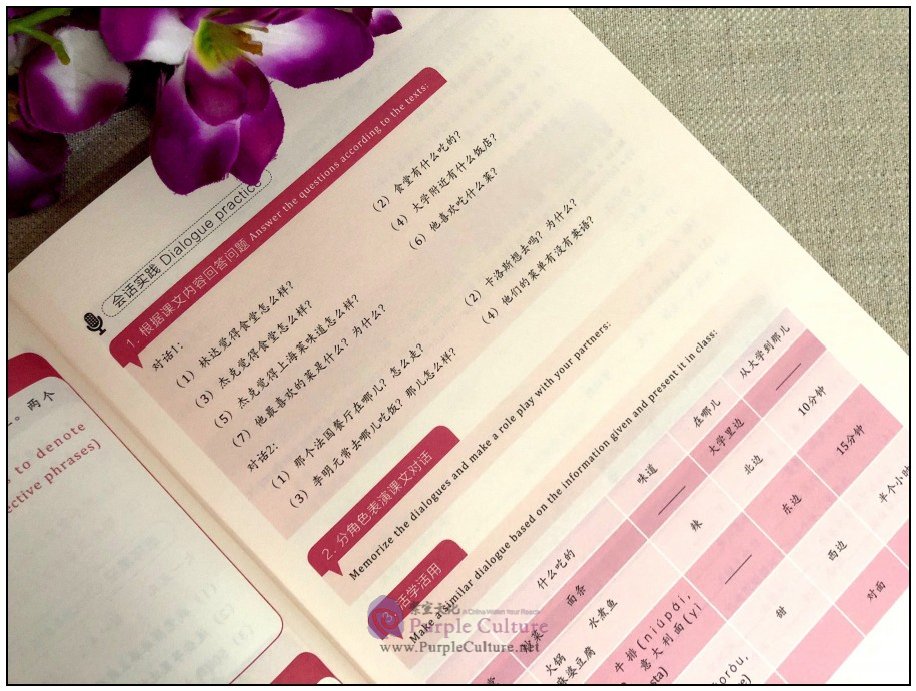 会话实践 Dialogue practice
1. 根据课文内容回答问题 Answer the questions according to the texts:
对话1:
(1) 林达觉得食堂怎么样?
(2) 食堂有什么吃的?
(3) 杰克觉得食堂怎么样?
(4) 大学附近有什么饭店?
(5) 杰克觉得上海菜味道怎么样?
(6) 他喜欢吃什么菜?
(7) 他最喜欢的菜是什么? 为什么?
对话2:
(1) 那个法国餐厅在哪儿? 怎么走?
(2) 卡洛斯想去吗? 为什么?
(3) 李明元常去哪儿吃饭? 那儿怎么样?
(4) 他们的菜单有没有英语?
2. 分角色表演课文对话
Memorize the dialogues and make a role play with your partners:
3. 活学活用
Make a similar dialogue based on the information given and present it in class:
什么吃的 味道 在哪儿 从大学到那儿
面条 —— 大学里边 ——
水煮鱼 辣 北边 10分钟
火锅
麻婆豆腐
—— 东边 15分钟
牛排 (niúpái,
意大利面 (yì
西边 半个小时
甜 对面
。两个
to denote
ective phrases)
Purple Culture
A China Within Your Reach
www.PurpleCulture.net